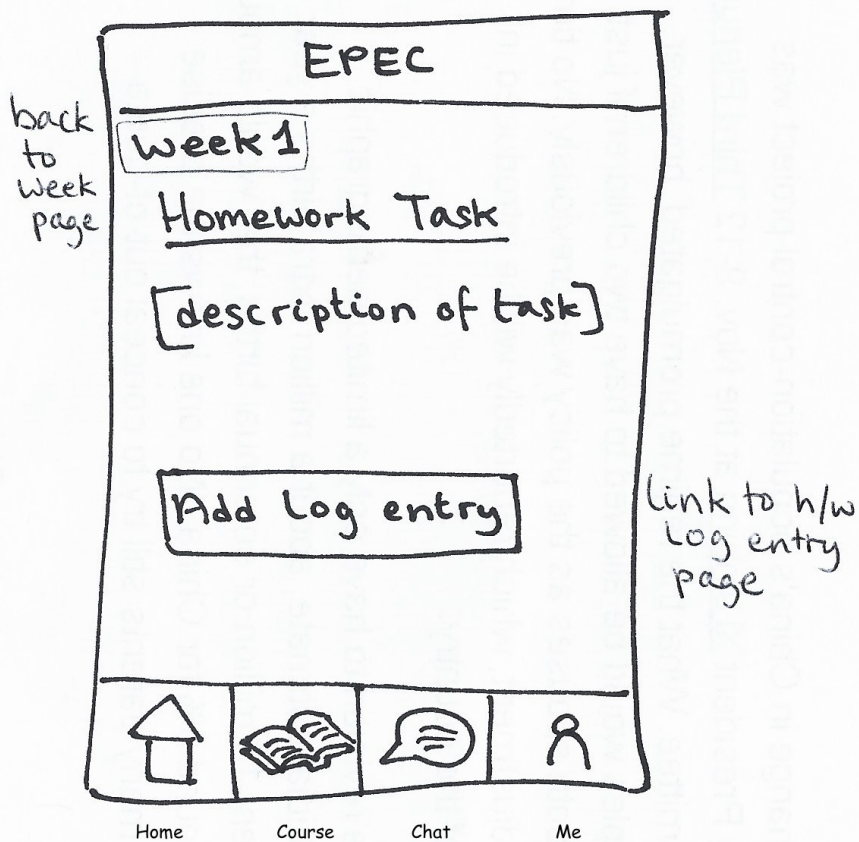 EPEC
back
to
week
page
week 1
Homework Task
[description of task]
Add Log entry
Link to h/w
Log entry
page
Home
Course
Chat
Me